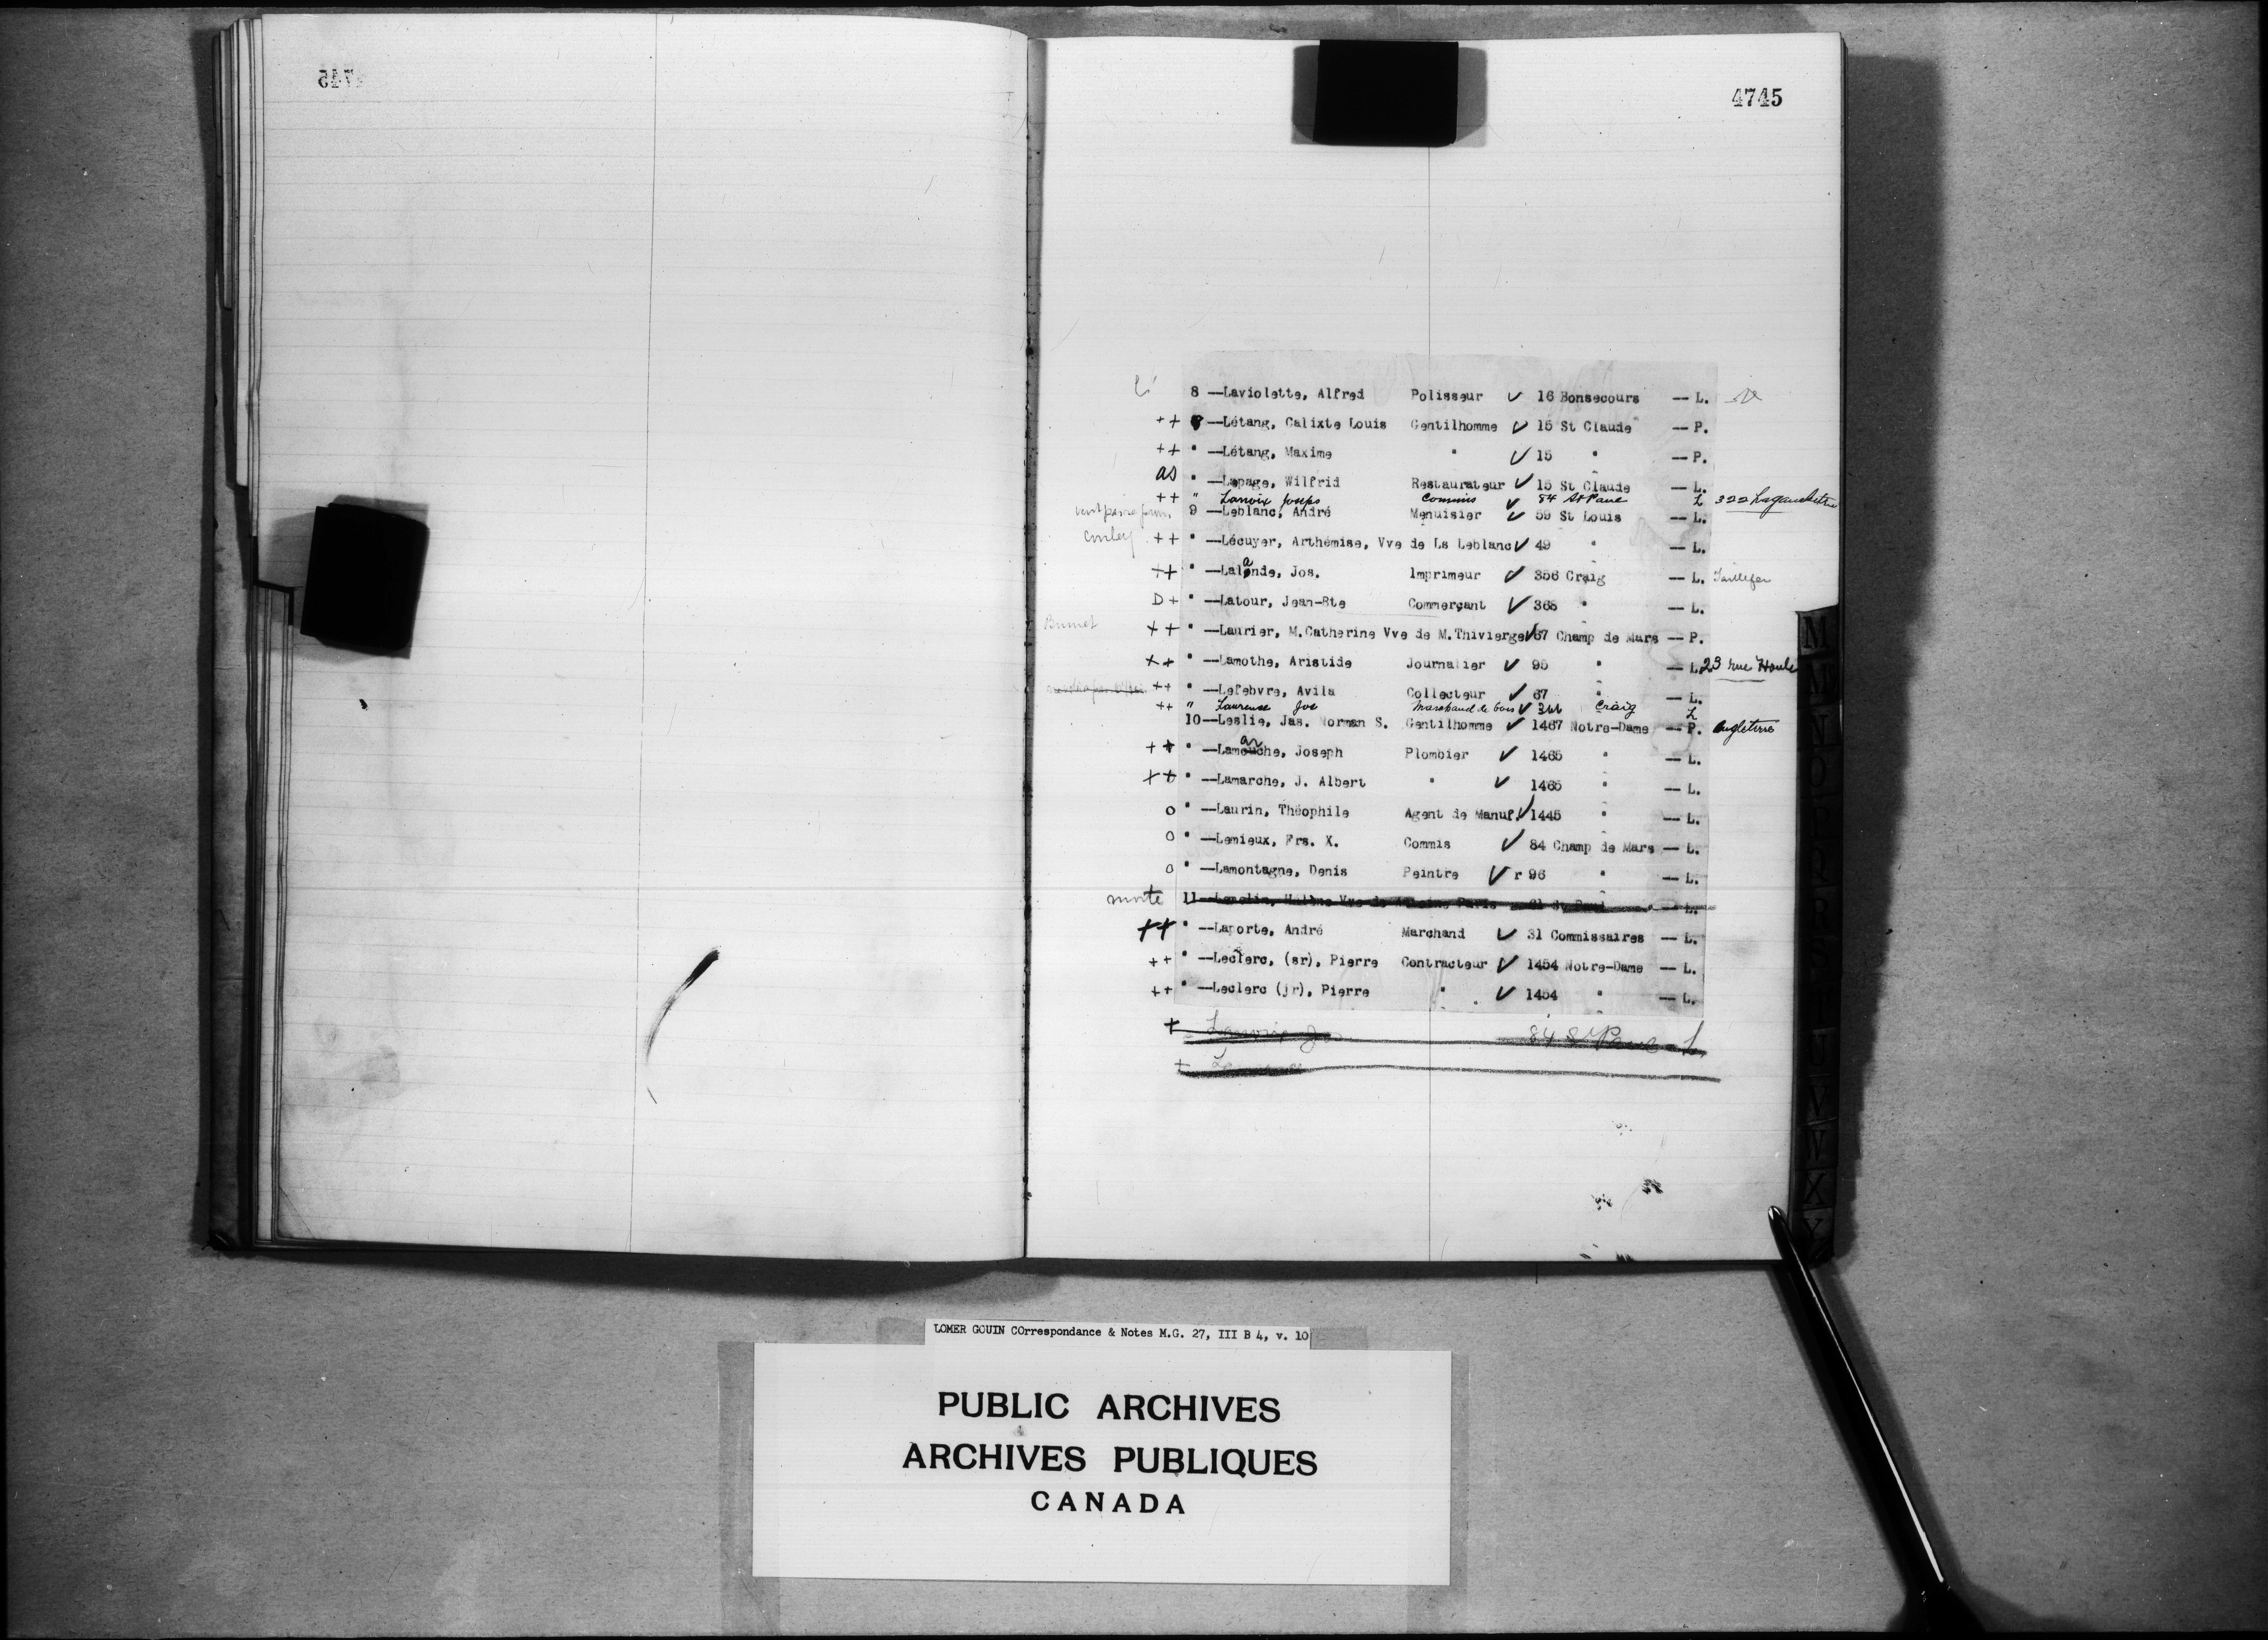 4745
8 —Laviolette, Alfred Polisseur ✓ 16 Bonsecours — L.
++ —Létang, Calixte Louis Gentilhomme ✓ 15 St Claude — P.
++ " —Létang, Maxime " ✓ 15 " — P.
as " —Lepage, Wilfrid Restaurateur ✓ 15 St Claude — L.
++ " Lanoix Joseps Commis ✓ 84 St Paul L 322 Lagauchetiere
9 —Leblanc, André Menuisier ✓ 59 St Louis — L.
++ " —Lécuyer, Arthémise, Vve de Ls Leblanc ✓ 49 " — L.
++ " —Lalande, Jos. Imprimeur ✓ 356 Craig — L.
D+ " —Latour, Jean-Bte Commerçant ✓ 368 " — L.
Brunet ++ " —Laurier, M. Catherine Vve de M. Thivierge ✓ 67 Champ de Mars — P.
++ " —Lamothe, Aristide Journalier ✓ 95 " — L. 23 rue Houle
++ " —Lefebvre, Avila Collecteur ✓ 67 " — L.
++ " Laureuse Jos Marchand de bois ✓ 344 Craig L
10—Leslie, Jas. Norman S. Gentilhomme ✓ 1467 Notre-Dame — P. Angleterre
++ " —Lamarche, Joseph Plombier ✓ 1465 " — L.
++ " —Lamarche, J. Albert " ✓ 1465 " — L.
o " —Laurin, Théophile Agent de Manuf. ✓ 1445 " — L.
o " —Lemieux, Frs. X. Commis ✓ 84 Champ de Mars — L.
o " —Lamontagne, Denis Peintre ✓ r 96 " — L.
morte 11— Vve de — L.
++ " —Laporte, André Marchand ✓ 31 Commissaires — L.
++ " —Leclerc, (sr), Pierre Contracteur ✓ 1454 Notre-Dame — L.
++ " —Leclerc (jr), Pierre " ✓ 1454 " — L.
+ Lanoix Jos 84 St Paul - L
+
M
N
O
U
V
X
Y
LOMER GOUIN COrrespondance & Notes M.G. 27, III B 4, v. 10
PUBLIC ARCHIVES
ARCHIVES PUBLIQUES
CANADA